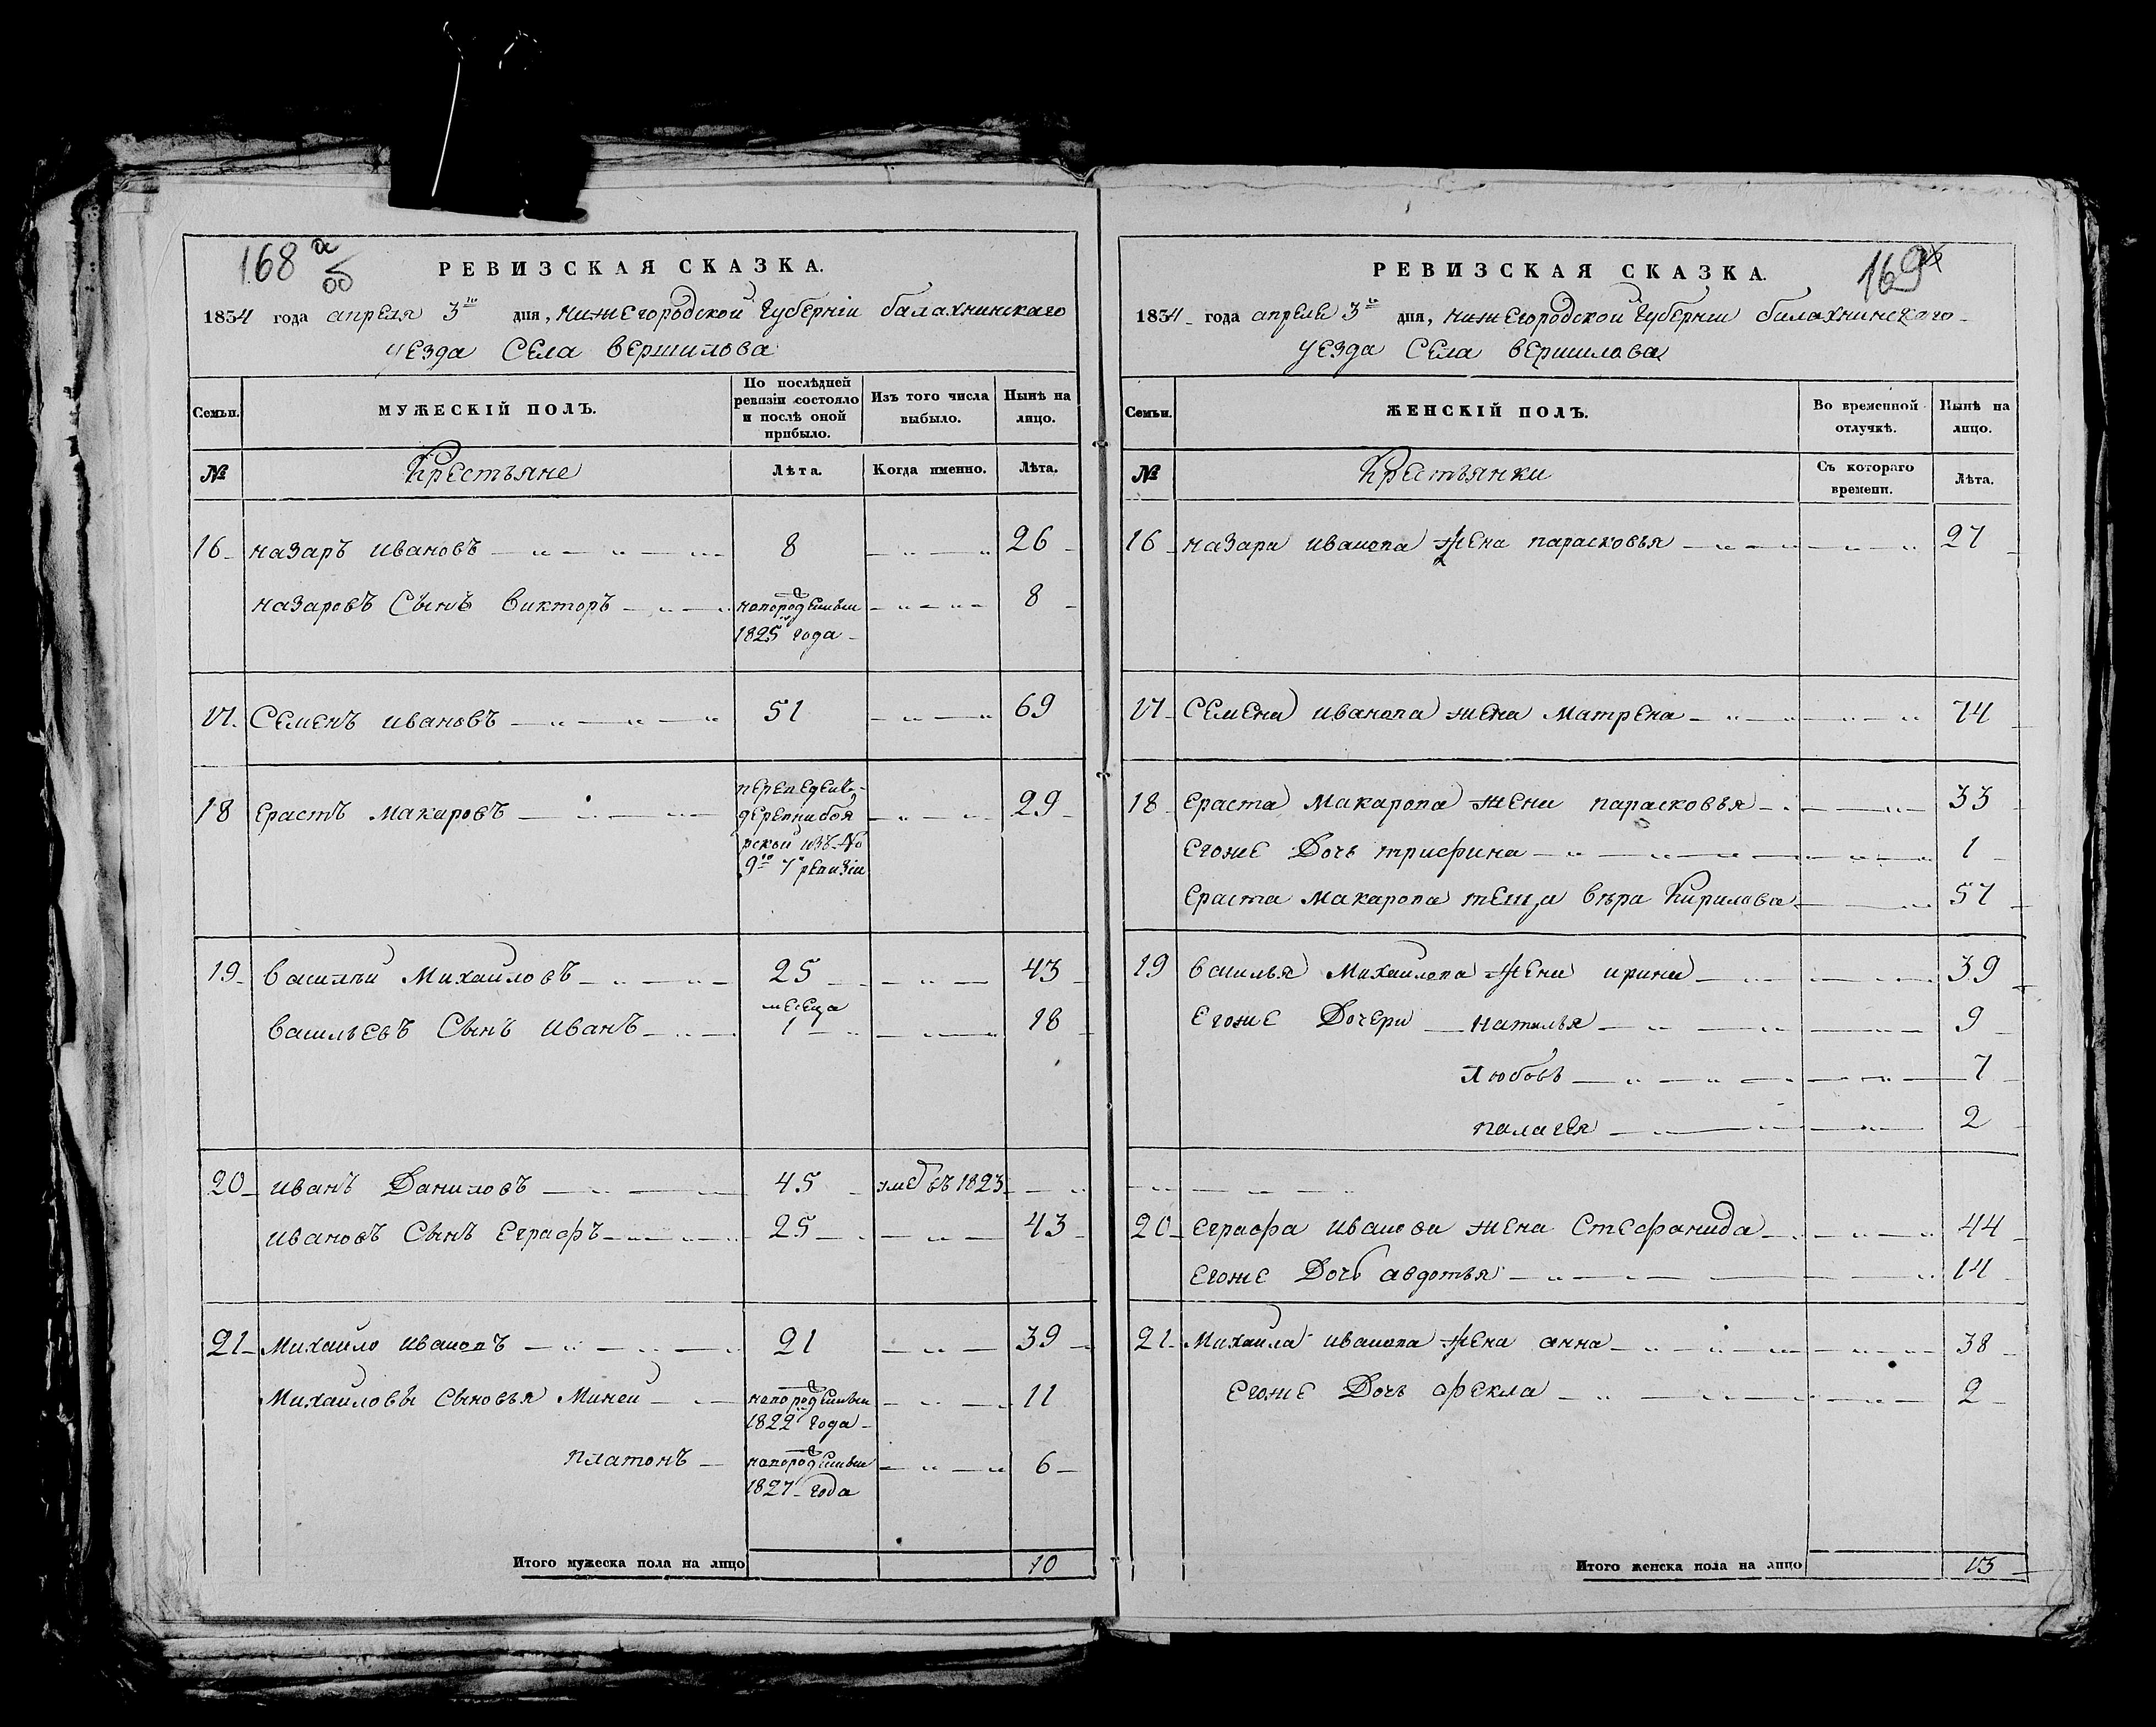 168 а
об
РЕВИЗСКАЯ СКАЗКА.
1834 года апреля 3го дня, нижегородской губерніи балахнинскаго
уезда Села вершилова
Семьи. МУЖЕСКІЙ ПОЛЪ. По послѣдней ревизіи состояло и послѣ оной прибыло. Изъ того числа выбыло. Нынѣ на лицо.
№ Крестьяне Лѣта. Когда именно. Лѣта.
16 назаръ ивановъ 8 26
назаровъ Сынъ викторъ новорожденный 8
1825 года
17. Семенъ ивановъ 51 69
18 Ерастъ Макаровъ переведенъ 29
деревни боя
рской изъ No
9го 7 ревизіи
19 василѣй Михайловъ 25 43
васильевъ Сынъ иванъ месеца 1 18
20 иванъ Даниловъ 45 умеръ въ 1823
ивановъ Сынъ Еграфъ 25 43
21 Михайло ивановъ 21 39
Михайловы Сыновья Миней 11
1822 года
платонъ 6
1827 года
Итого мужеска пола на лицо 10
169
РЕВИЗСКАЯ СКАЗКА.
1834 года апреля 3го дня, нижегородской губерніи балахнинскаго
уезда Села вершилова
Семьи. ЖЕНСКІЙ ПОЛЪ. Во временной отлучкѣ. Нынѣ на лицо.
№ Крестьянки Съ котораго времени. Лѣта.
16 назара иванова жена парасковья 27
17 Семена иванова жена Матрена 74
18 Ераста Макарова жена парасковья 33
Егоже Дочь трифина 1
Ераста Макарова теща вѣра Кирилова 57
19 василья Михайлова жена ирина 39
Егоже Дочери наталья 9
Любовь 7
палагея 2
20 Еграфа иванова жена Стефанида 44
Егоже Дочь авдотья 14
21 Михайла иванова жена анна 38
Егоже Дочь фекла 2
Итого женска пола на лицо 13